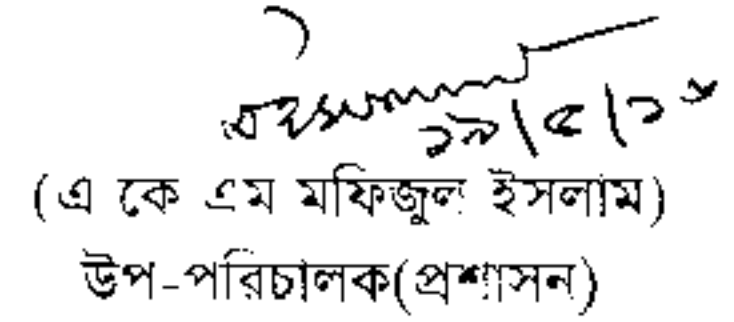 ১৯/৫/১৬
(এ কে এম মফিজুল ইসলাম)
উপ-পরিচালক(প্রশাসন)